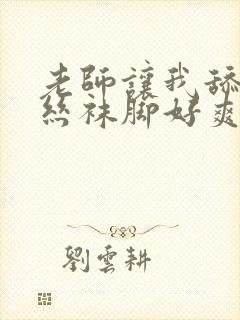 老師讓我舔
絲袜脚好爽
劉雲耕